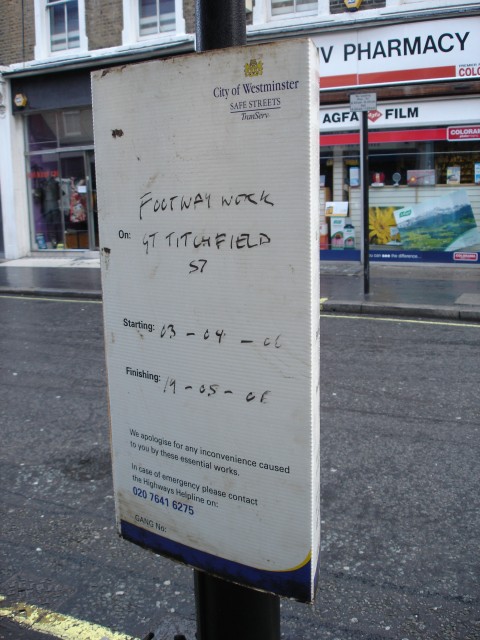 V PHARMACY
AGFA FILM
COLORAMA
City of Westminster
SAFE STREETS
TranServ
FOOTWAY WORK
On: GT TITCHFIELD
ST
Starting: 03-04-06
Finishing: 19-05-06
We apologise for any inconvenience caused
to you by these essential works.
In case of emergency please contact
the Highways Helpline on:
020 7641 6275
GANG No: